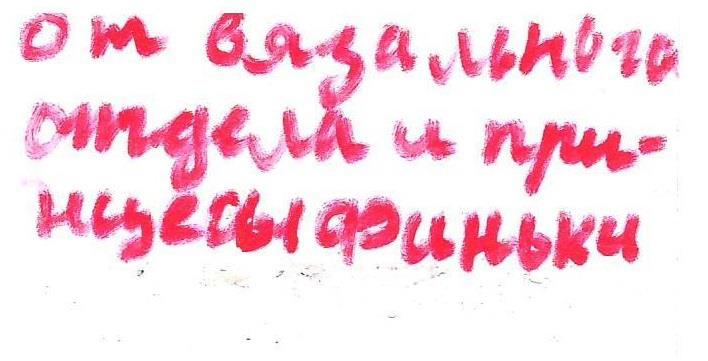 от вязального
отдела и при-
нцесы Финьки